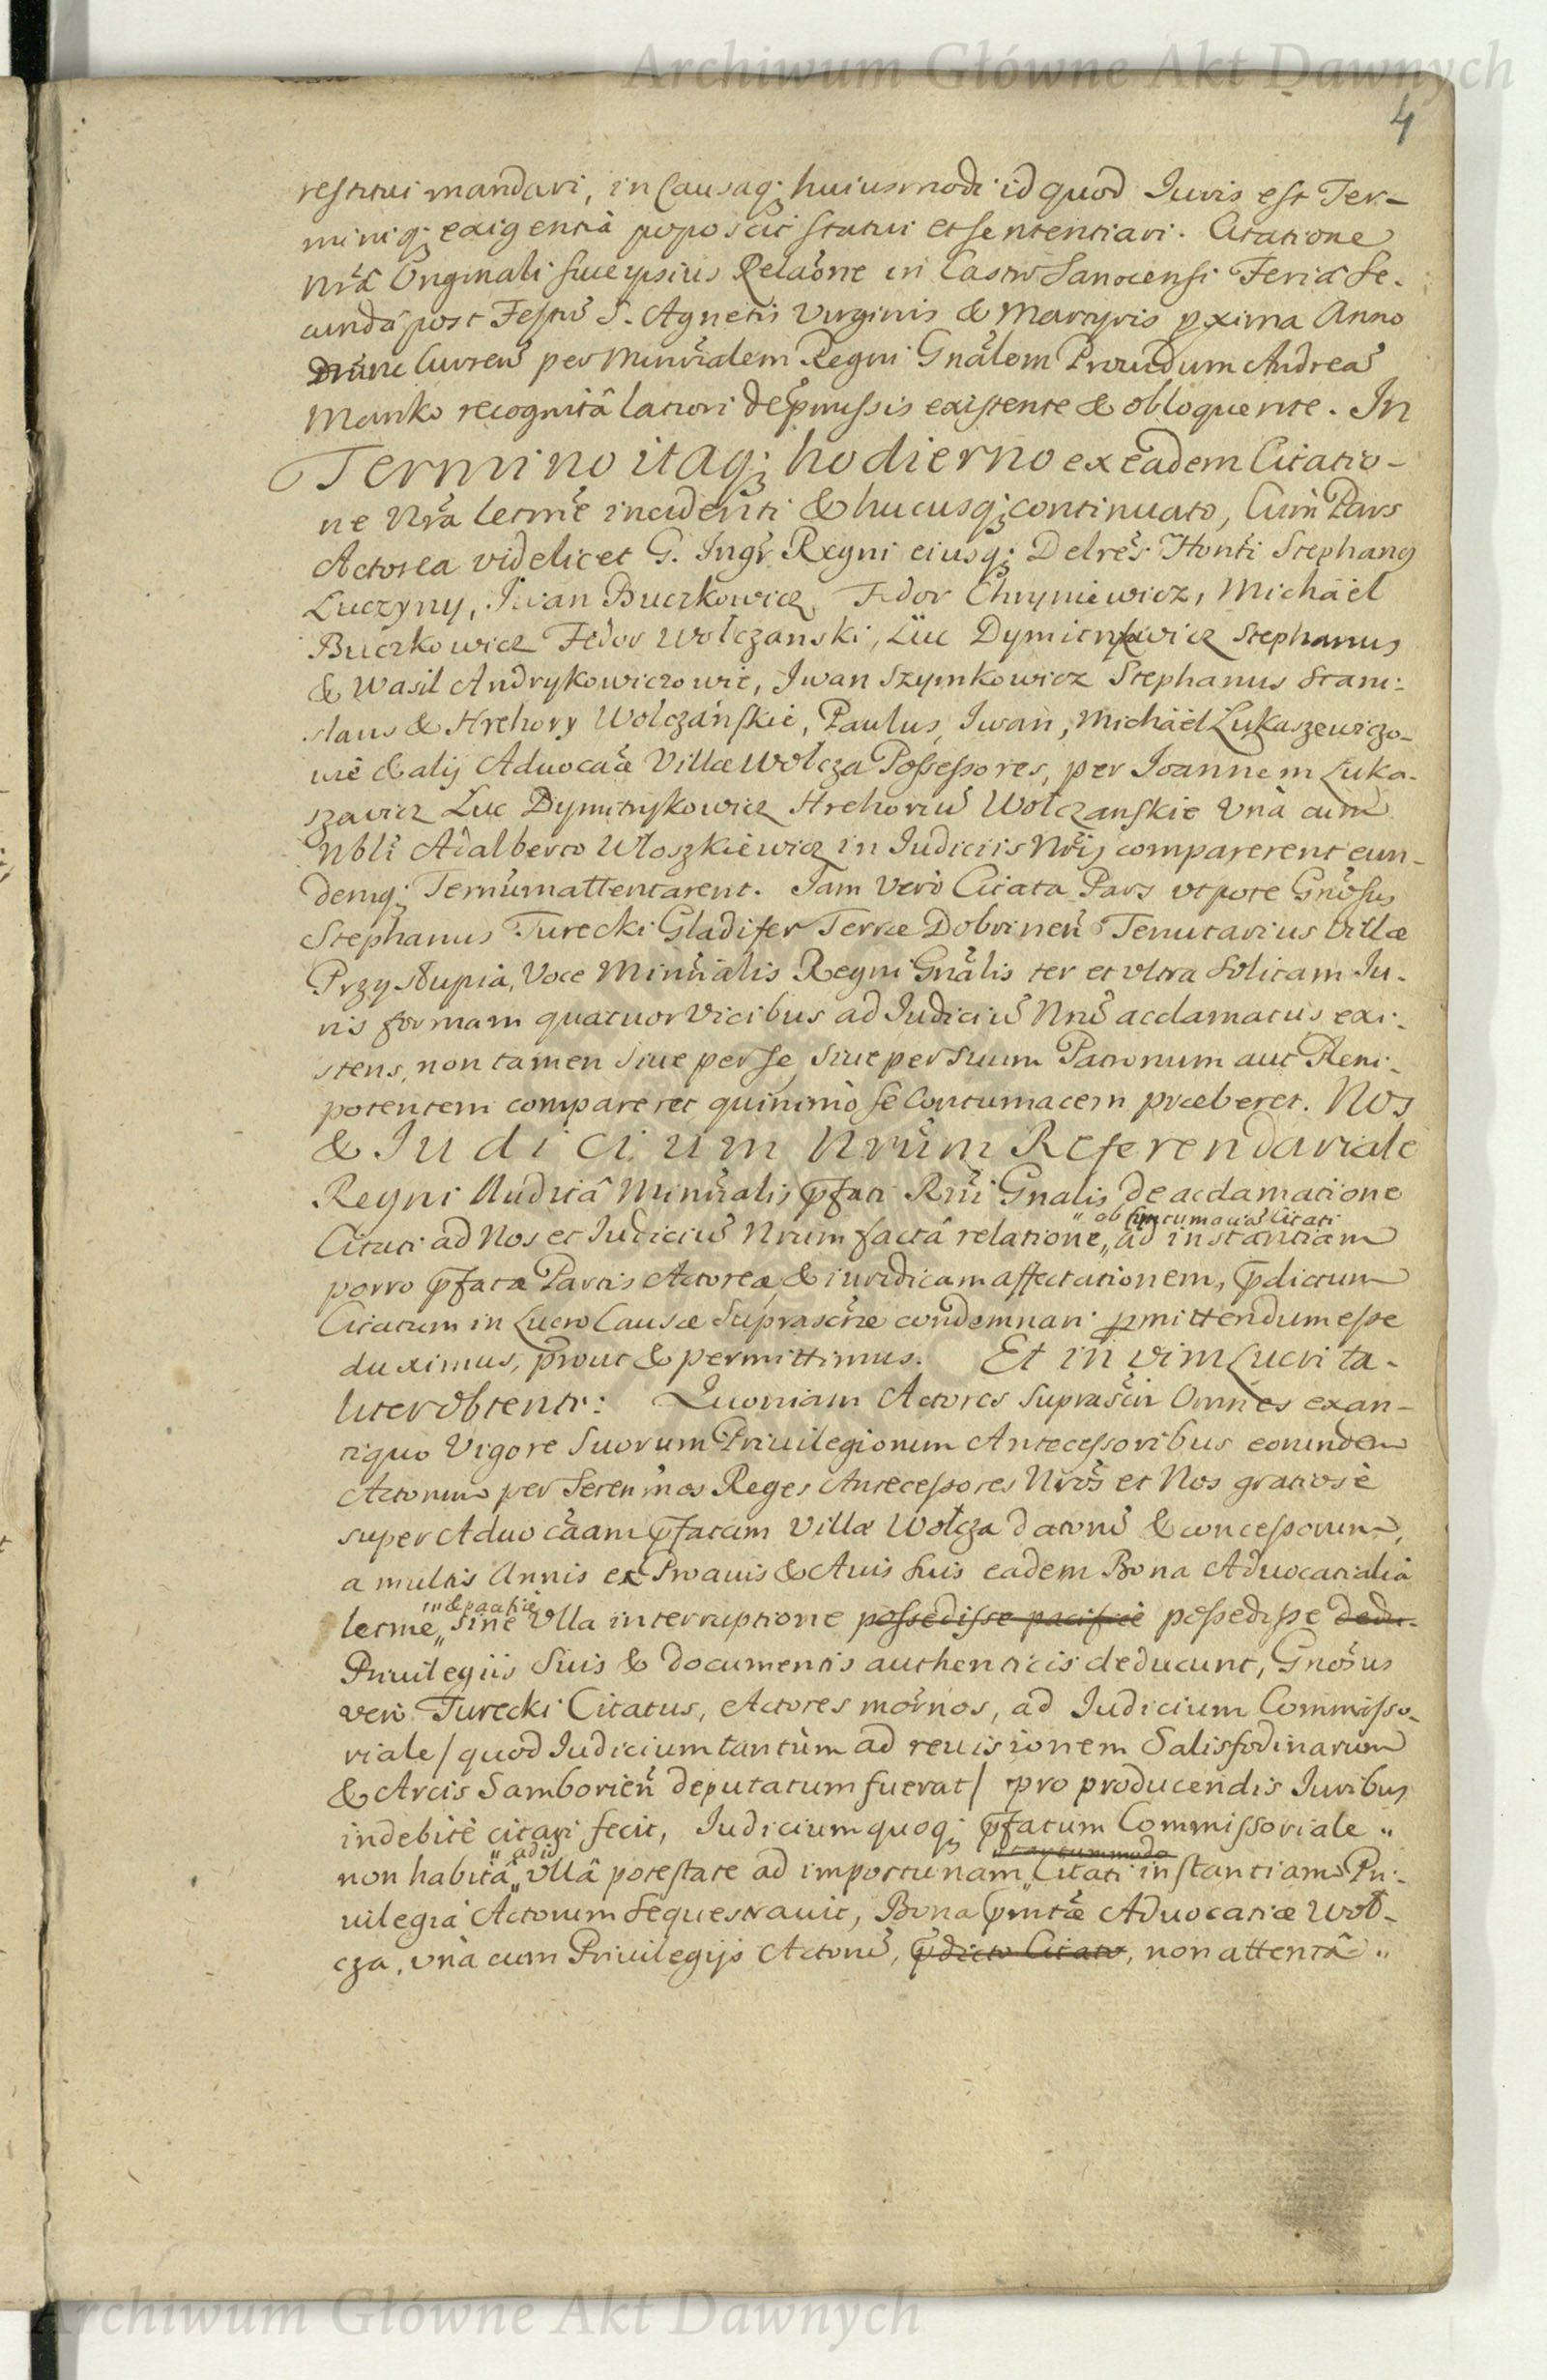 Archiwum Główne Akt Dawnych
4
restitui mandari, in Causaq; huiusmodi id quod Iuris est Ter-
miniq; exigentia poposcit statui et sententiari. Citatione
Nrã Originali siue ipsius Relaõne in Castro Sanocensi Feria Se-
cunda post Festũ S. Agnetis Virginis & Martyris pxima Anno
nunc Curreñ per Minrĩalem Regni Gnãlem Prouidum Andreã
Manko recognitâ latiori de p̃missis existente & obloquente. In
Termino itaq; hodierno ex eadem Citatio-
ne Nrã letmẽ incidenti & hucusq; continuato, Cum Pars
Actorea videlicet G. Ingr̃ Regni eiusq; Delrẽs Honti Stephanus
Luczyny, Iwan Buczkowicz, Fedor Chryniewicz, Michäel
Buczkowicz Fedor Wołczanski, Luc Dymitrykowicz Stephanus
& Wasil Andrykowiczowie, Iwan Szymkowicz Stephanus Stani-
slaus & Hrehory Wołczanskie, Paulus, Iwan, Michäel Łukaszewiczo-
wie & alij Aduocaãe Villæ Wołcza Possessores, per Ioannem Łuka-
szewicz Luc Dymitrykowicz Hrehoriũ Wołczanskie Vnà cum
Nbli Adalberto Włoszkiewicz in Iudiciis Nrĩs comparerent eun-
demq; Terñumattentarent. Iam verò Citata Pars vtpote Gnõsus
Stephanus Turecki Gladifer Terræ Dobrineñ Tenutarius Villæ
Przysłupia, Voce Minrĩalis Regni Gnãlis ter et vltra solitam Iu-
ris formam quatuor Vicibus ad Iudiciũ Nrũ acclamatus exi-
stens, non tamen siue per se, siue per suum Patronum aut Pleni-
potentem compareret quinimò se Contumacem præberet. Nos
& Iudicium Nrũm Referendariale
Regni Auditâ Minrĩalis p̃fati Rñi Gnalis de acclamatione
ob Contumaciã Citati
Citati ad Nos et Iudiciũ Nrum factâ relatione,, ad instantiam
porro p̃fatæ Partis Actoreæ & iuridicam affectationem, p̃dictum
Citatum in Lucro Causæ Suprascr̃æ condemnari pmittendum esse
duximus, prout & permittimus. Et in vim Lucri ta-
liter obtenti: Quoniam Actores suprascri Omnes exan-
tiquo Vigore Suorum Priuilegiorum Antecessoribus eorundem
Actorum per Serenmos Reges Antecessores Nrõs et Nos gratiosè
super Aduocãam p̃fatam Villæ Wołcza datorũ & concessorum,
a multis Annis ex Proauis & Auis suis eadem Bona Aduocatialia
in & pacificè
letme,, sine Vlla interruptione possedisse pacificè possedisse dedu-
Priuilegiis Suis & documentis authenticis deducunt, Gnõsus
verò Turecki Citatus, Actores mõrnos, ad Iudicium Commisso-
riale / quod Iudicium tantùm ad reuisionem Salisfodinarum
& Arcis Samborieñ deputatum fuerat / pro producendis Iuribus
indebitè citari fecit, Iudicium quoq; p̃fatum Commissoriale „
ad id
tantummodo
non habitâ,, vllâ potestate ad importunam,, Citati instantiam Pri-
uilegia Actorum sequestrauit, Bona p̃mtæ Aduocatiæ Woł-
cza, vnà cum Priuilegijs Actorũ, p̃dicto Citato, non attentâ „
Archiwum Główne Akt Dawnych